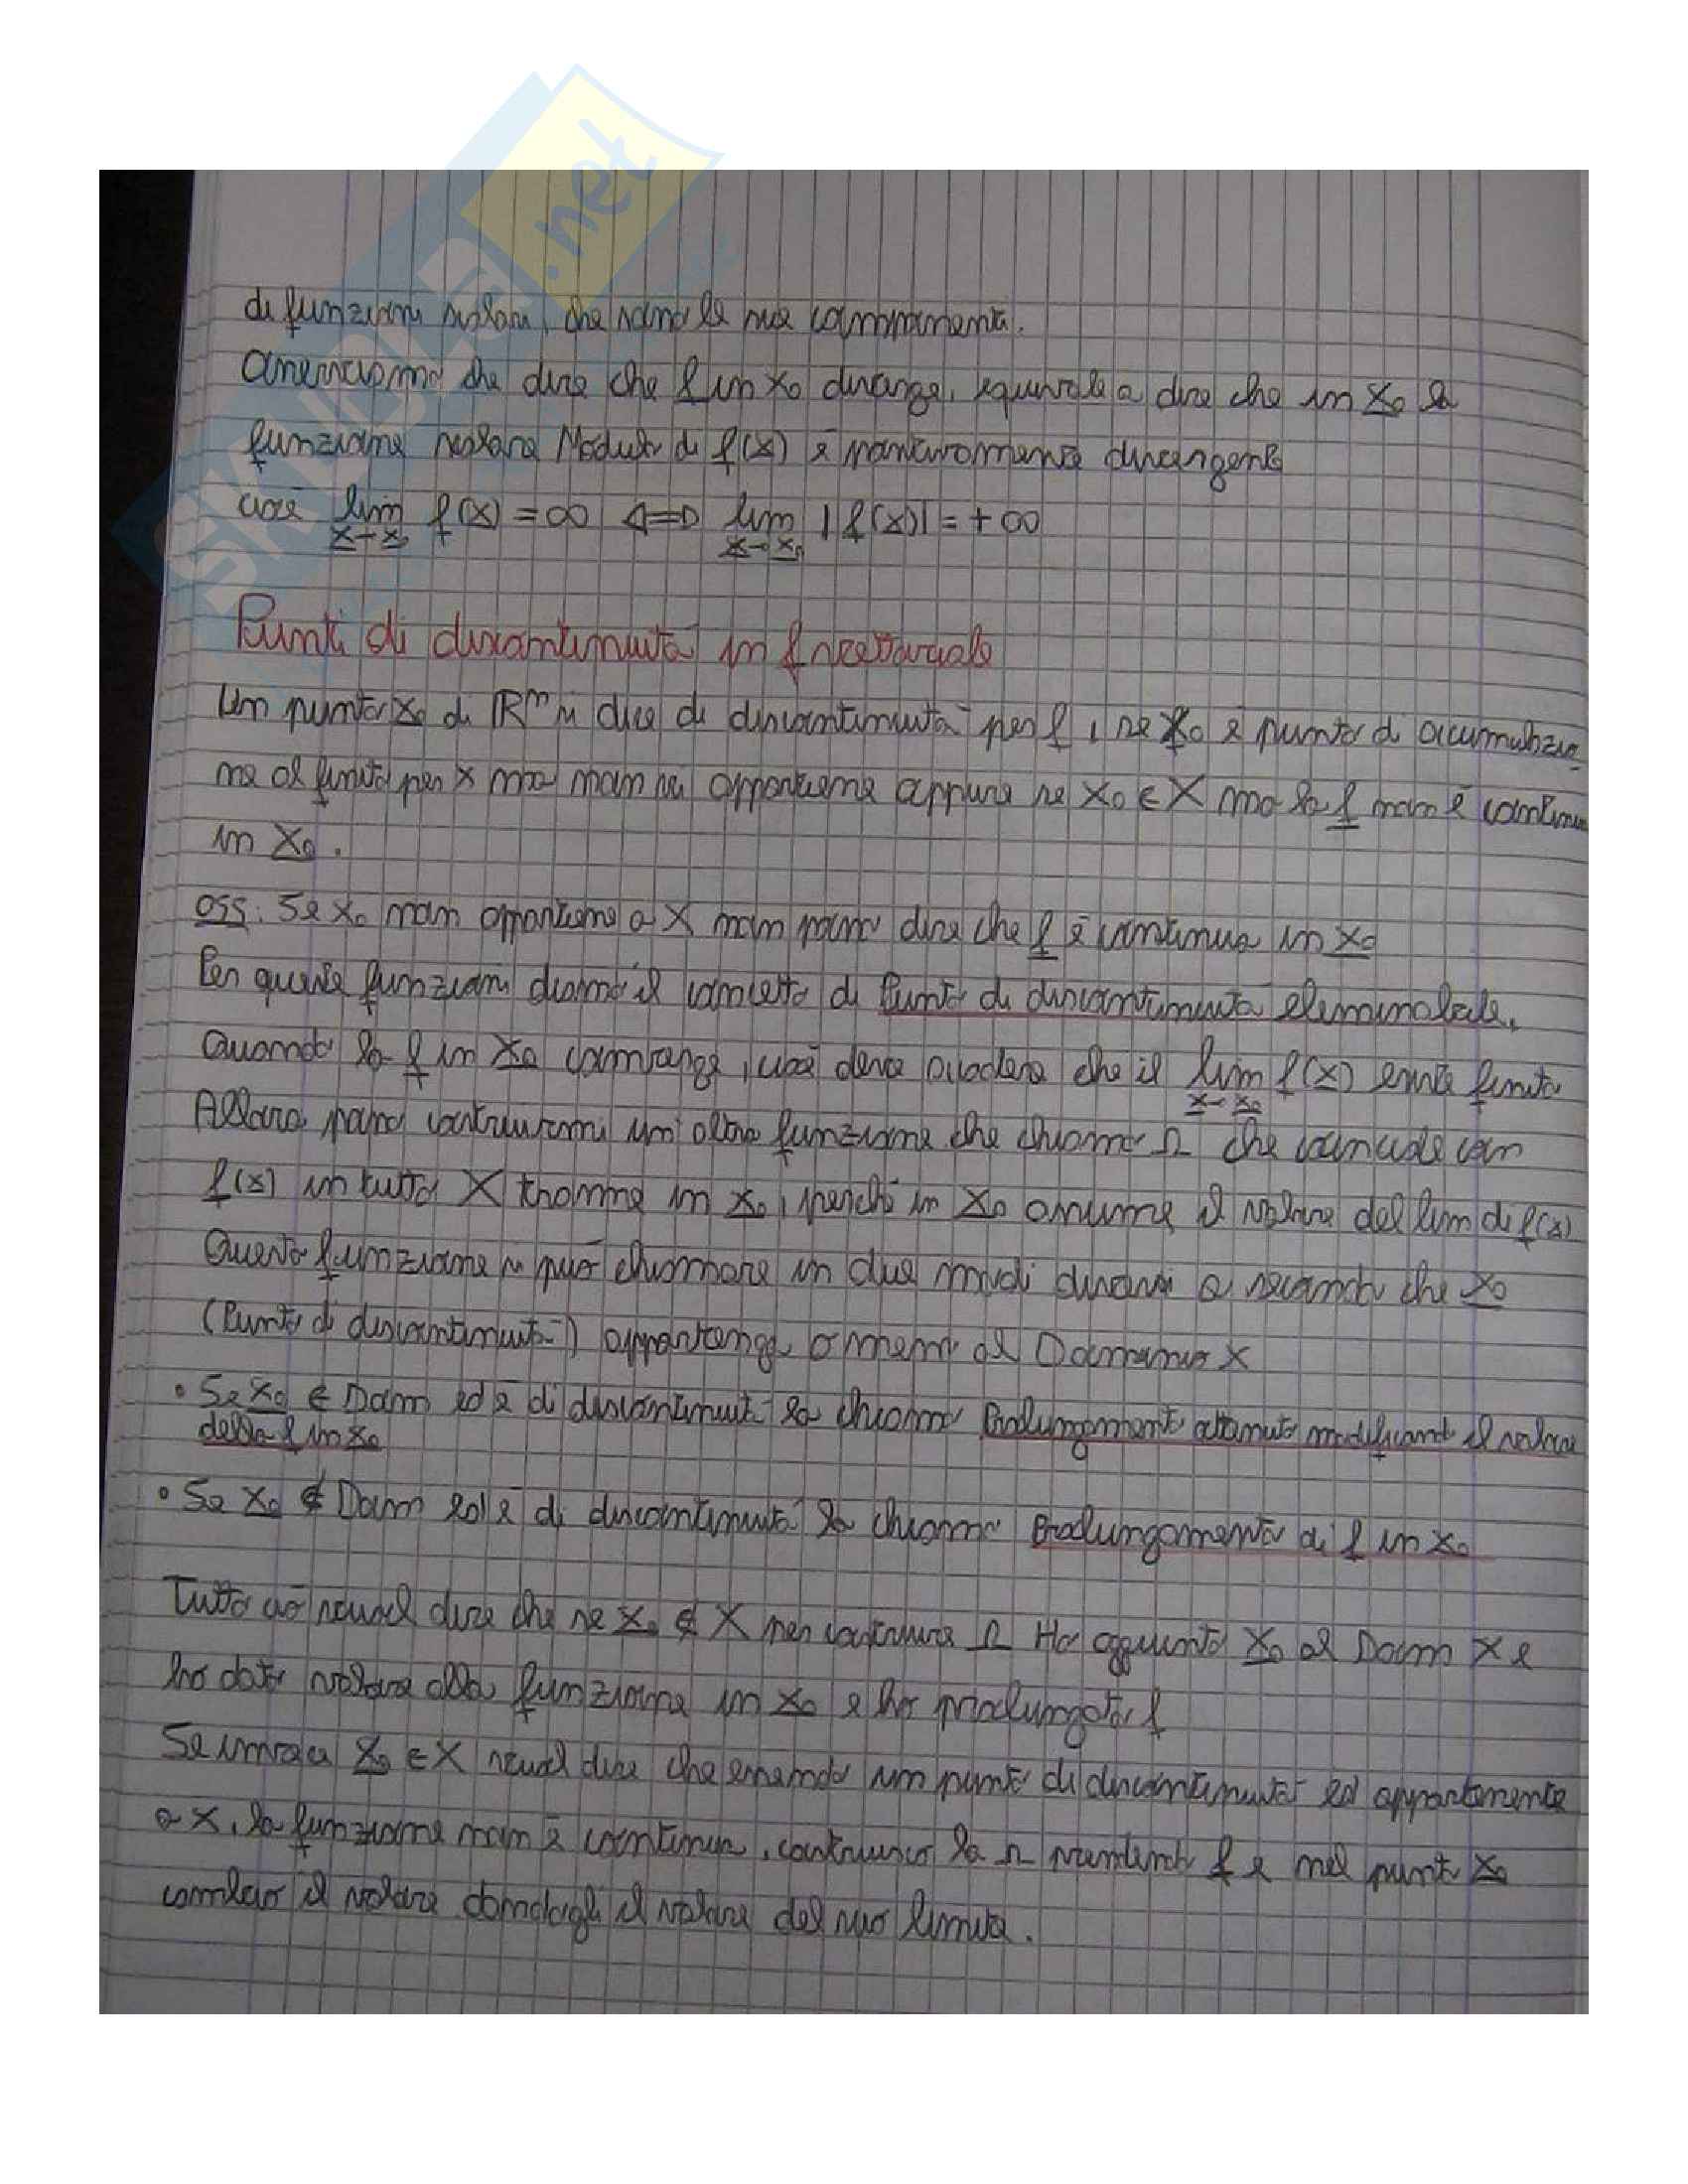 SKUOLA.net
di funzioni scalari, che sono le sue componenti.
Osserviamo che dire che f in x₀ diverge, equivale a dire che in x₀ la
funzione scalare Modulo di f(x) è positivamente divergente
cioè lim x→x₀ f(x) = ∞ ⇔ lim x→x₀ |f(x)| = +∞
Punti di discontinuità in f vettoriale
Un punto x₀ di ℝⁿ si dice di discontinuità per f, se x₀ è punto di accumulazio
ne al finito per X ma non vi appartiene oppure se x₀ ∈ X ma la f non è continua
in x₀.
OSS: Se x₀ non appartiene a X non posso dire che f è continua in x₀
Per queste funzioni diamo il concetto di Punto di discontinuità eliminabile.
Quando la f in x₀ converge, cioè deve accadere che il lim x→x₀ f(x) esiste finito
Allora posso costruirmi un'altra funzione che chiamo Ω che coincide con
f(x) in tutto X tranne in x₀, perché in x₀ assume il valore del lim di f(x)
Questa funzione si può chiamare in due modi diversi a secondo che x₀
(Punto di discontinuità) appartenga o meno al Dominio X
• Se x₀ ∈ Dom ed è di discontinuità la chiamo Prolungamento ottenuto modificando il valore
della f in x₀
• Se x₀ ∉ Dom ed è di discontinuità la chiamo Prolungamento di f in x₀
Tutto ciò vuol dire che se x₀ ∉ X per costruire Ω Ho aggiunto x₀ al Dom X e
ho dato valore alla funzione in x₀ e ho prolungato f
Se invece x₀ ∈ X vuol dire che essendo un punto di discontinuità ed appartenente
a X, la funzione non è continua, costruisco la Ω prendendo f e nel punto x₀
cambio il valore dandogli il valore del suo limite.